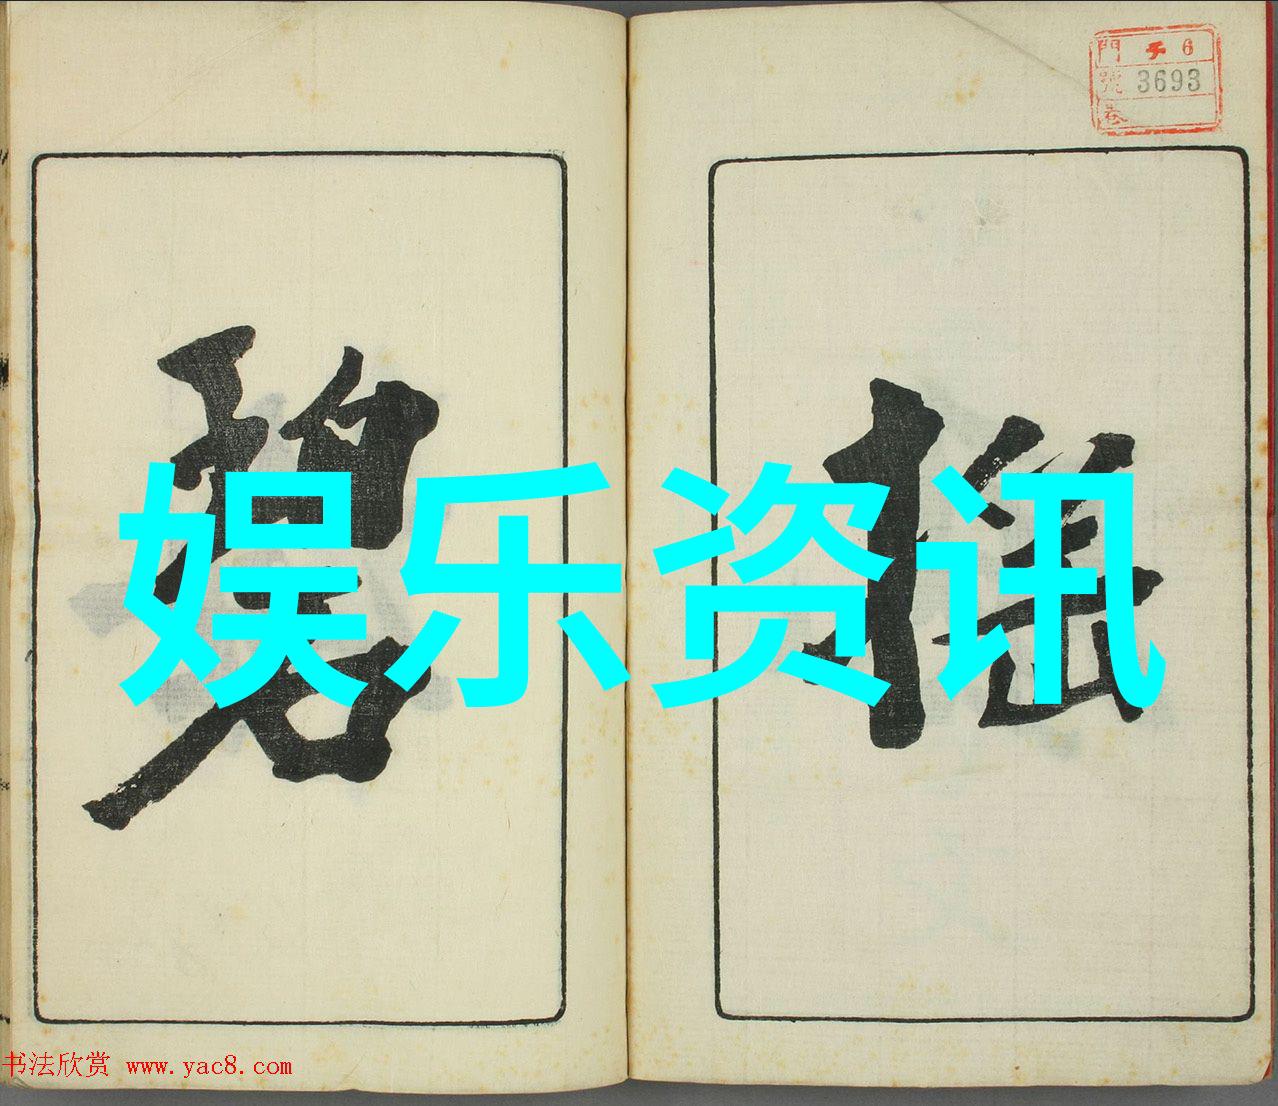 門 子 6
號 3693
卷
搖
碧
娱乐资讯
书法欣赏 www.yac8.com